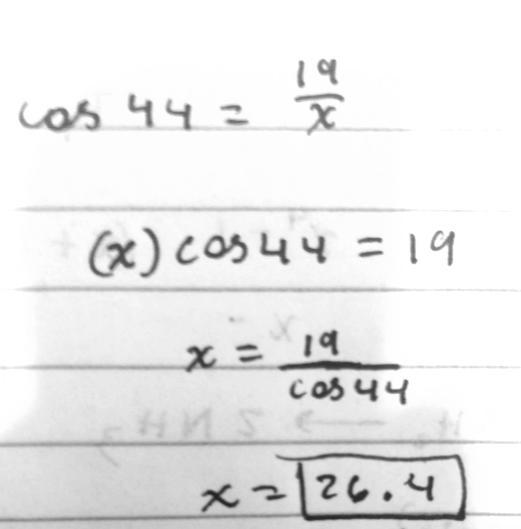 cos 44 = 19/x
(x) cos 44 = 19
x = 19/cos 44
x = 26.4
→ 2 NH3